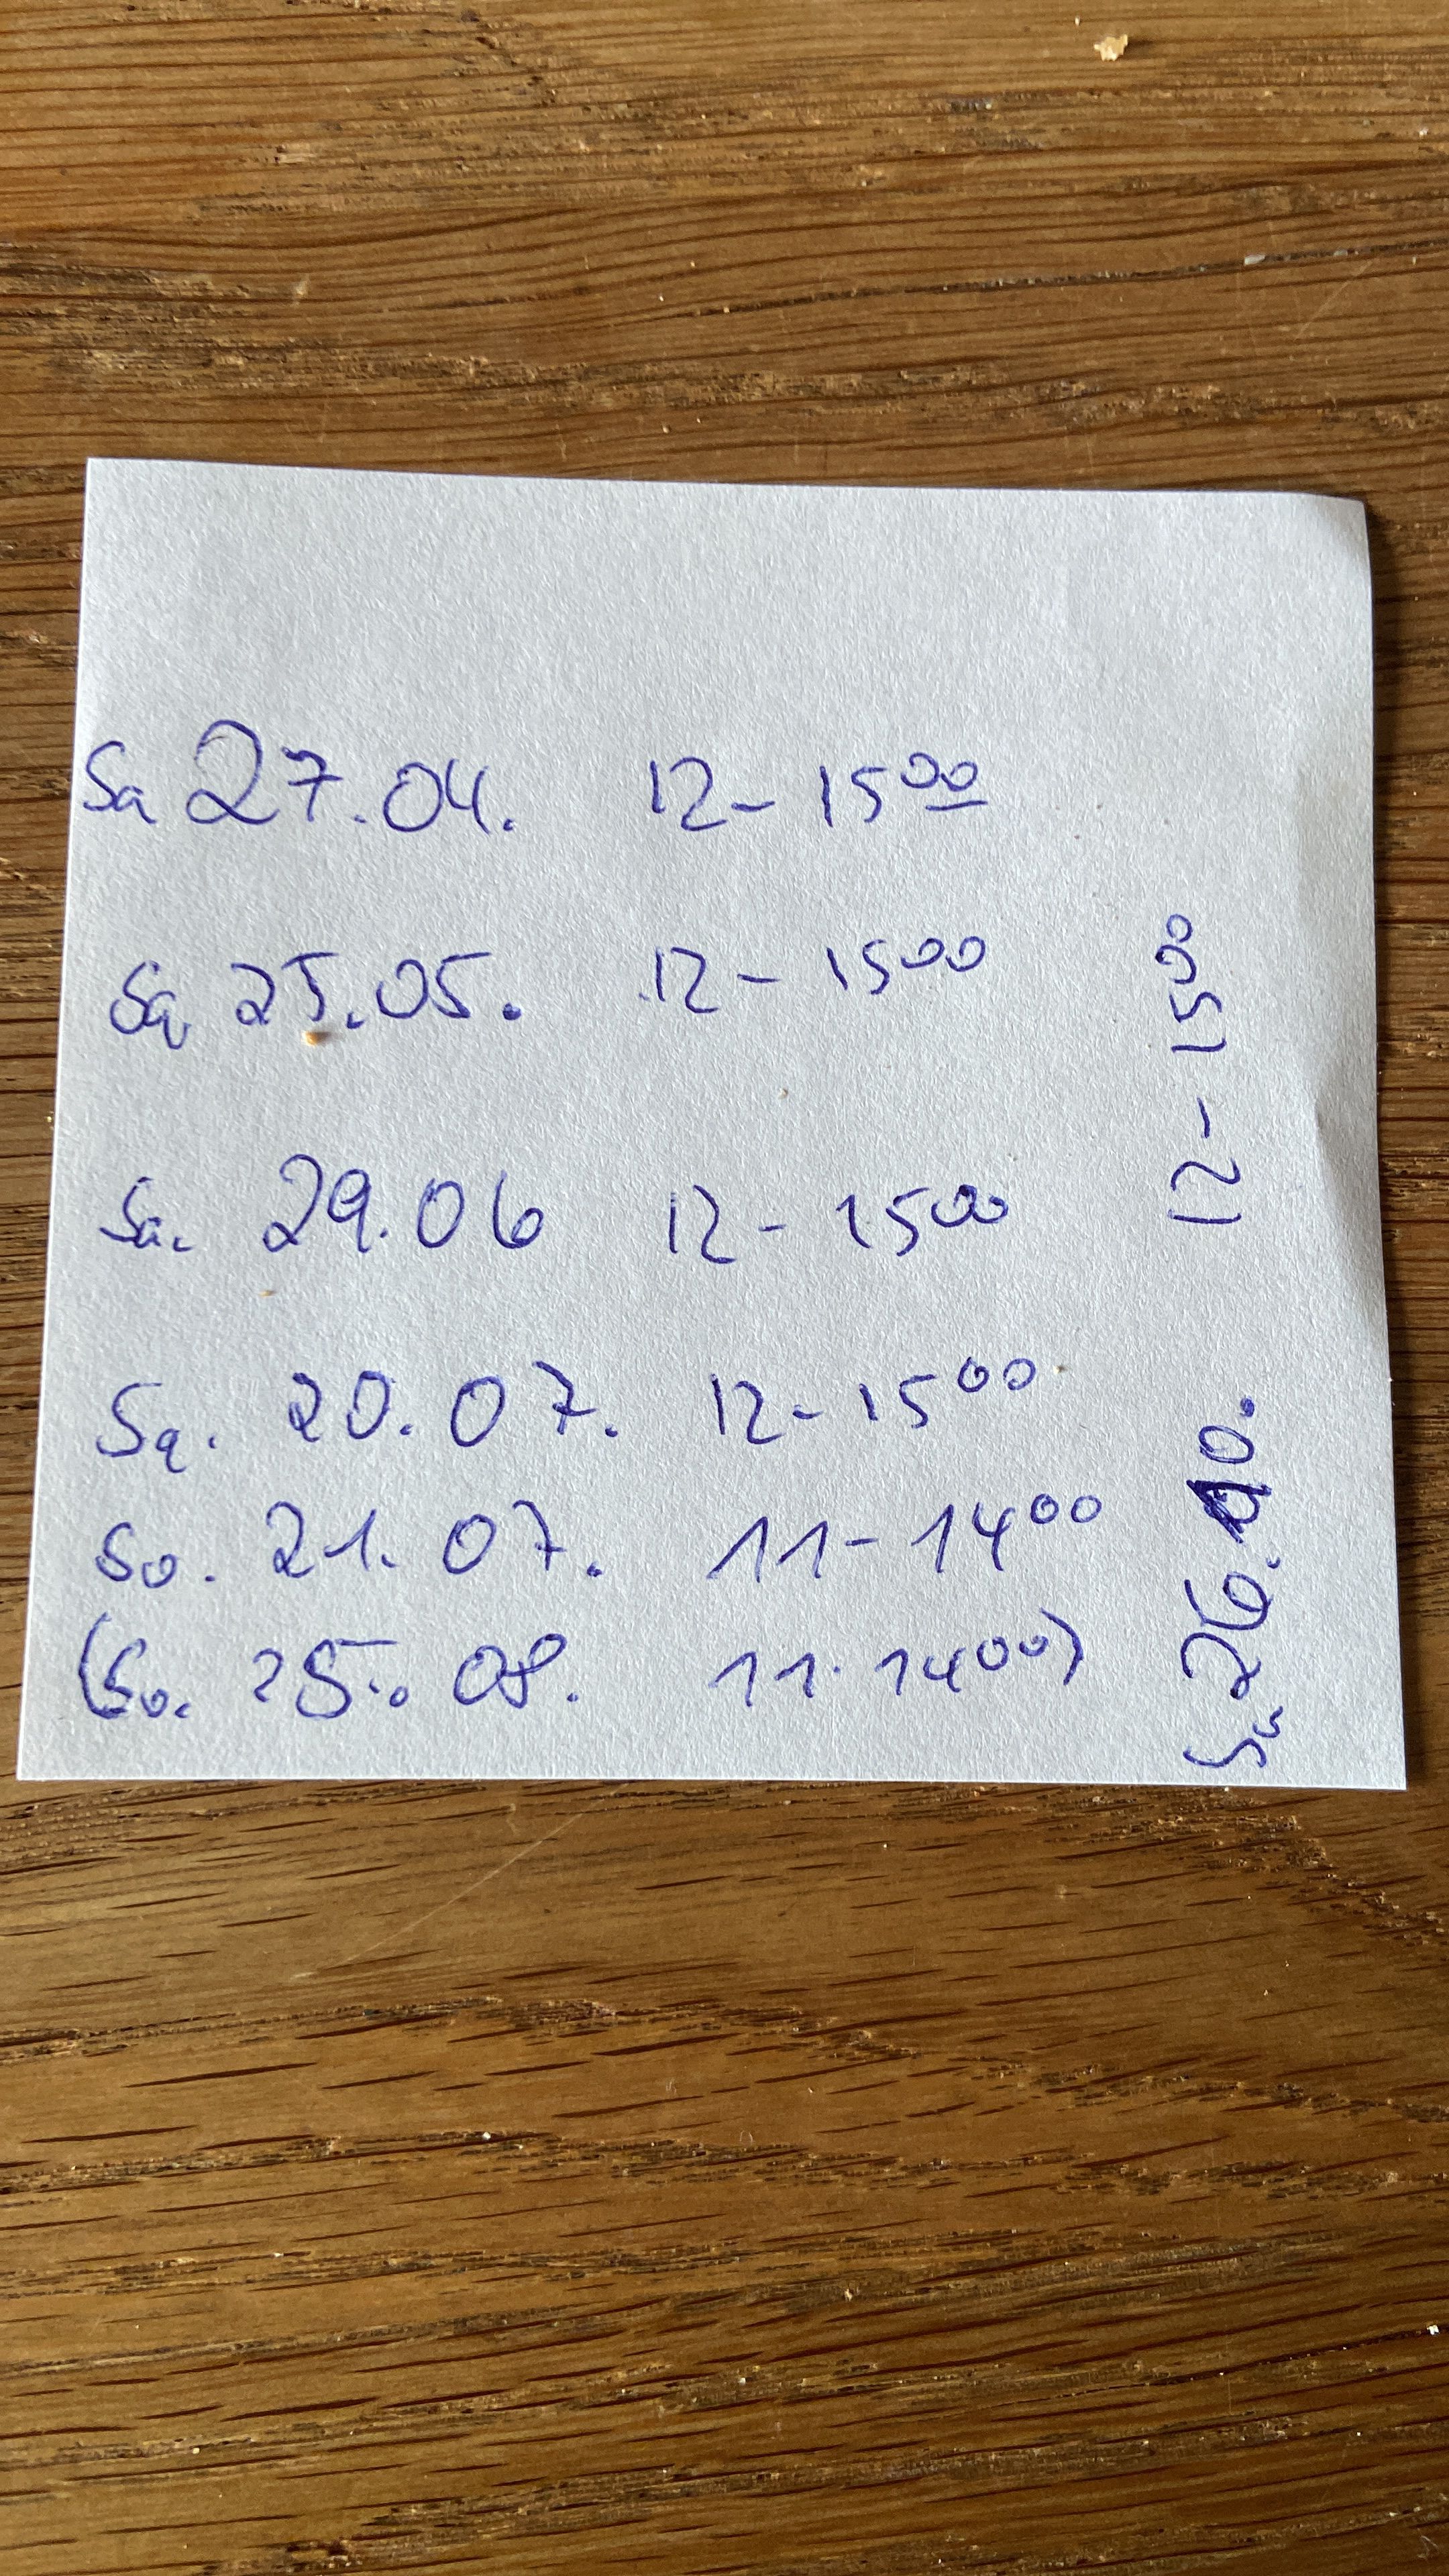 Sa 27.04. 12-15 00
Sa 25.05. 12-15 00
Sa. 29.06 12-15 00
Sa. 20.07. 12-15 00
So. 21.07. 11-14 00
(So. 25. 08. 11-14 00)
Sa 26.10. 12-15 00